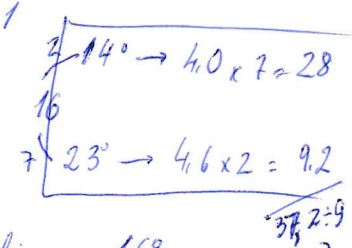 1
2 14° → 4,0 × 7 = 28
16
7 23° → 4,6 × 2 = 9,2
37,2 ÷ 9